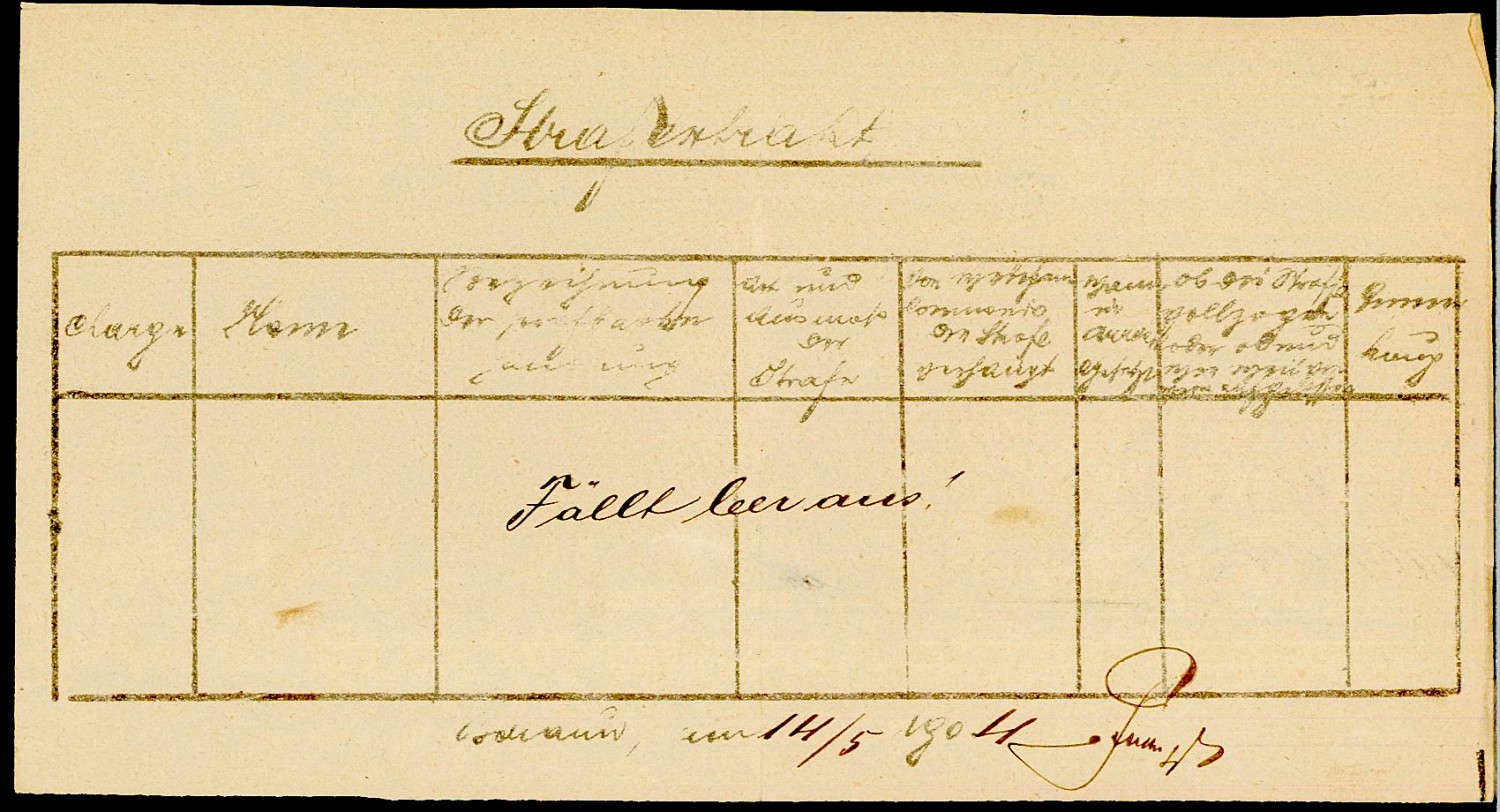 Strafextrakt
Charge
Name
Bezeichnung
der strafbaren
Handlung
Art und
Ausmaß
der
Strafe
Von welchem
Commando
die Strafe
verhängt
Wann
in
Arrest
gesetzt
ob die Strafe
vollzogen
oder ob und
Anmer
kung
Fällt leer aus!
am 14/5 1904